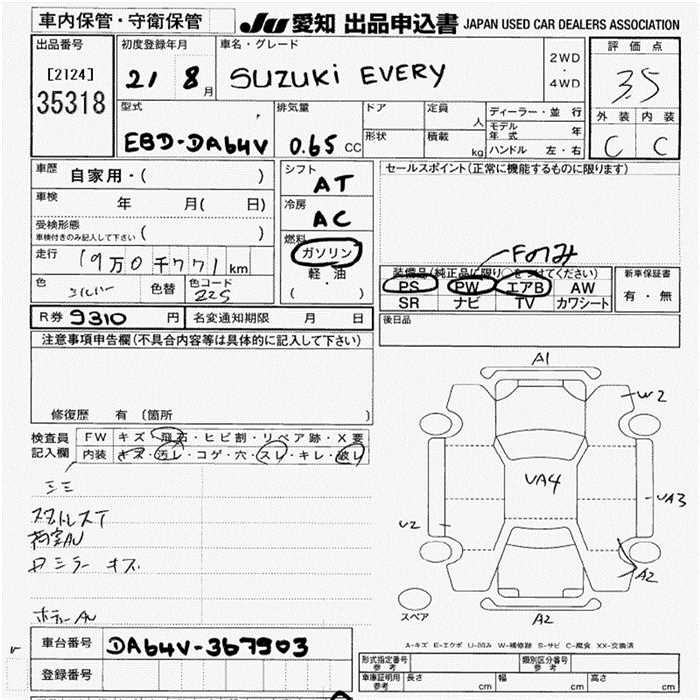 車内保管・守衛保管
JU 愛知 出品申込書 JAPAN USED CAR DEALERS ASSOCIATION
出品番号
[2124]
35318
初度登録年月
21 8 月
車名・グレード
SUZUKI EVERY
2WD
・
4WD
評価点
3.5
外装 内装
C C
型式
EBD-DA64V
排気量
0.65 CC
ドア
定員
人
形状
積載
kg
ディーラー・並 行
モデル年式 年
ハンドル 左・右
車歴
自家用・( )
シフト
AT
セールスポイント(正常に機能するものに限ります)
車検
年 月( 日)
冷房
AC
受検形態
車検付きのみ記入して下さい ( )
燃料
ガソリン
軽・油
( )
走行
19万0千771 km
色
シルバー
色替
色コード
Z2S
Fのみ
装備品(純正品に限り○をつけてください)
PS PW エアB AW
SR ナビ TV カワシート
新車保証書
有・無
R券 9310 円
名変通知期限 月 日
後日品
注意事項申告欄(不具合内容等は具体的に記入して下さい)
修復歴 有 〔箇所 〕
検査員
記入欄
FW キズ・飛石・ヒビ割・リペア跡・X要
内装 キズ・汚レ・コゲ・穴・スレ・キレ・破レ
A1
W2
UA4
UA3
U2
A2
A2
スペア
ミラー キズ
A-キズ E-エクボ U-凹み W-補修跡 S-サビ C-腐食 XX-交換済
車台番号
DA64V-367903
登録番号
形式指定番号
参考
類別区分番号
参考
車庫証明用
参考
長さ cm
幅 cm
高さ cm